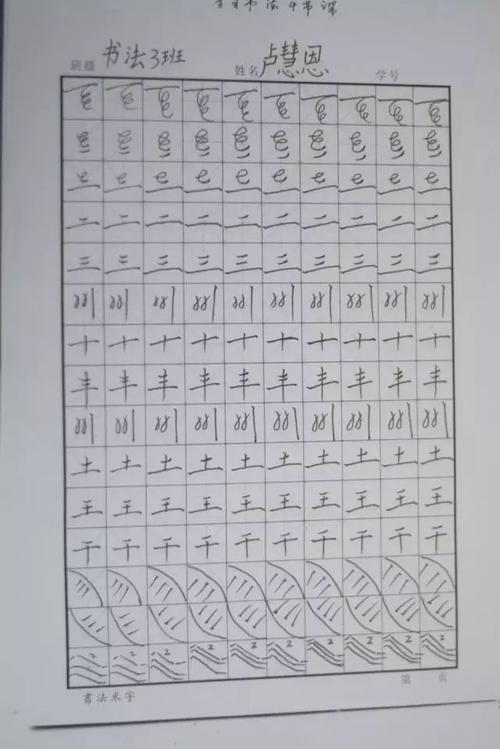 书法4节课
班级 书法3班 姓名 卢慧恩 学号
二 二 二 二 二 二 二 二 二 二
三 三 三 三 三 三 三 三 三 三
十 十 十 十 十 十 十 十 十 十
丰 丰 丰 丰 丰 丰 丰 丰 丰 丰
土 土 土 土 土 土 土 土 土 土
王 王 王 王 王 王 王 王 王 王
干 干 干 干 干 干 干 干 干 干
2 2 2 2 2 2 2 2 2 2
書法米字 第 页